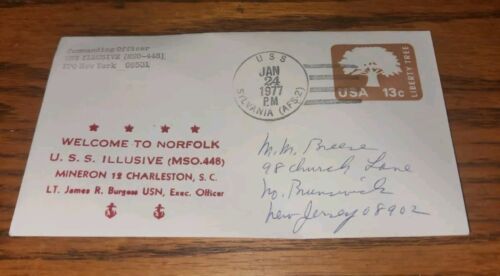 Commanding Officer
USS ILLUSIVE (MSO-448)
FPO New York 09501
USS
JAN
24
1977
PM
SYLVANIA (AFS-2)
USA 13c
LIBERTY TREE
WELCOME TO NORFOLK
U. S. S. ILLUSIVE (MSO.448)
MINERON 12 CHARLESTON, S. C.
LT. James R. Burgess USN, Exec. Officer
M. M. Breese
98 Church Lane
No. Brunswick
New Jersey 08902